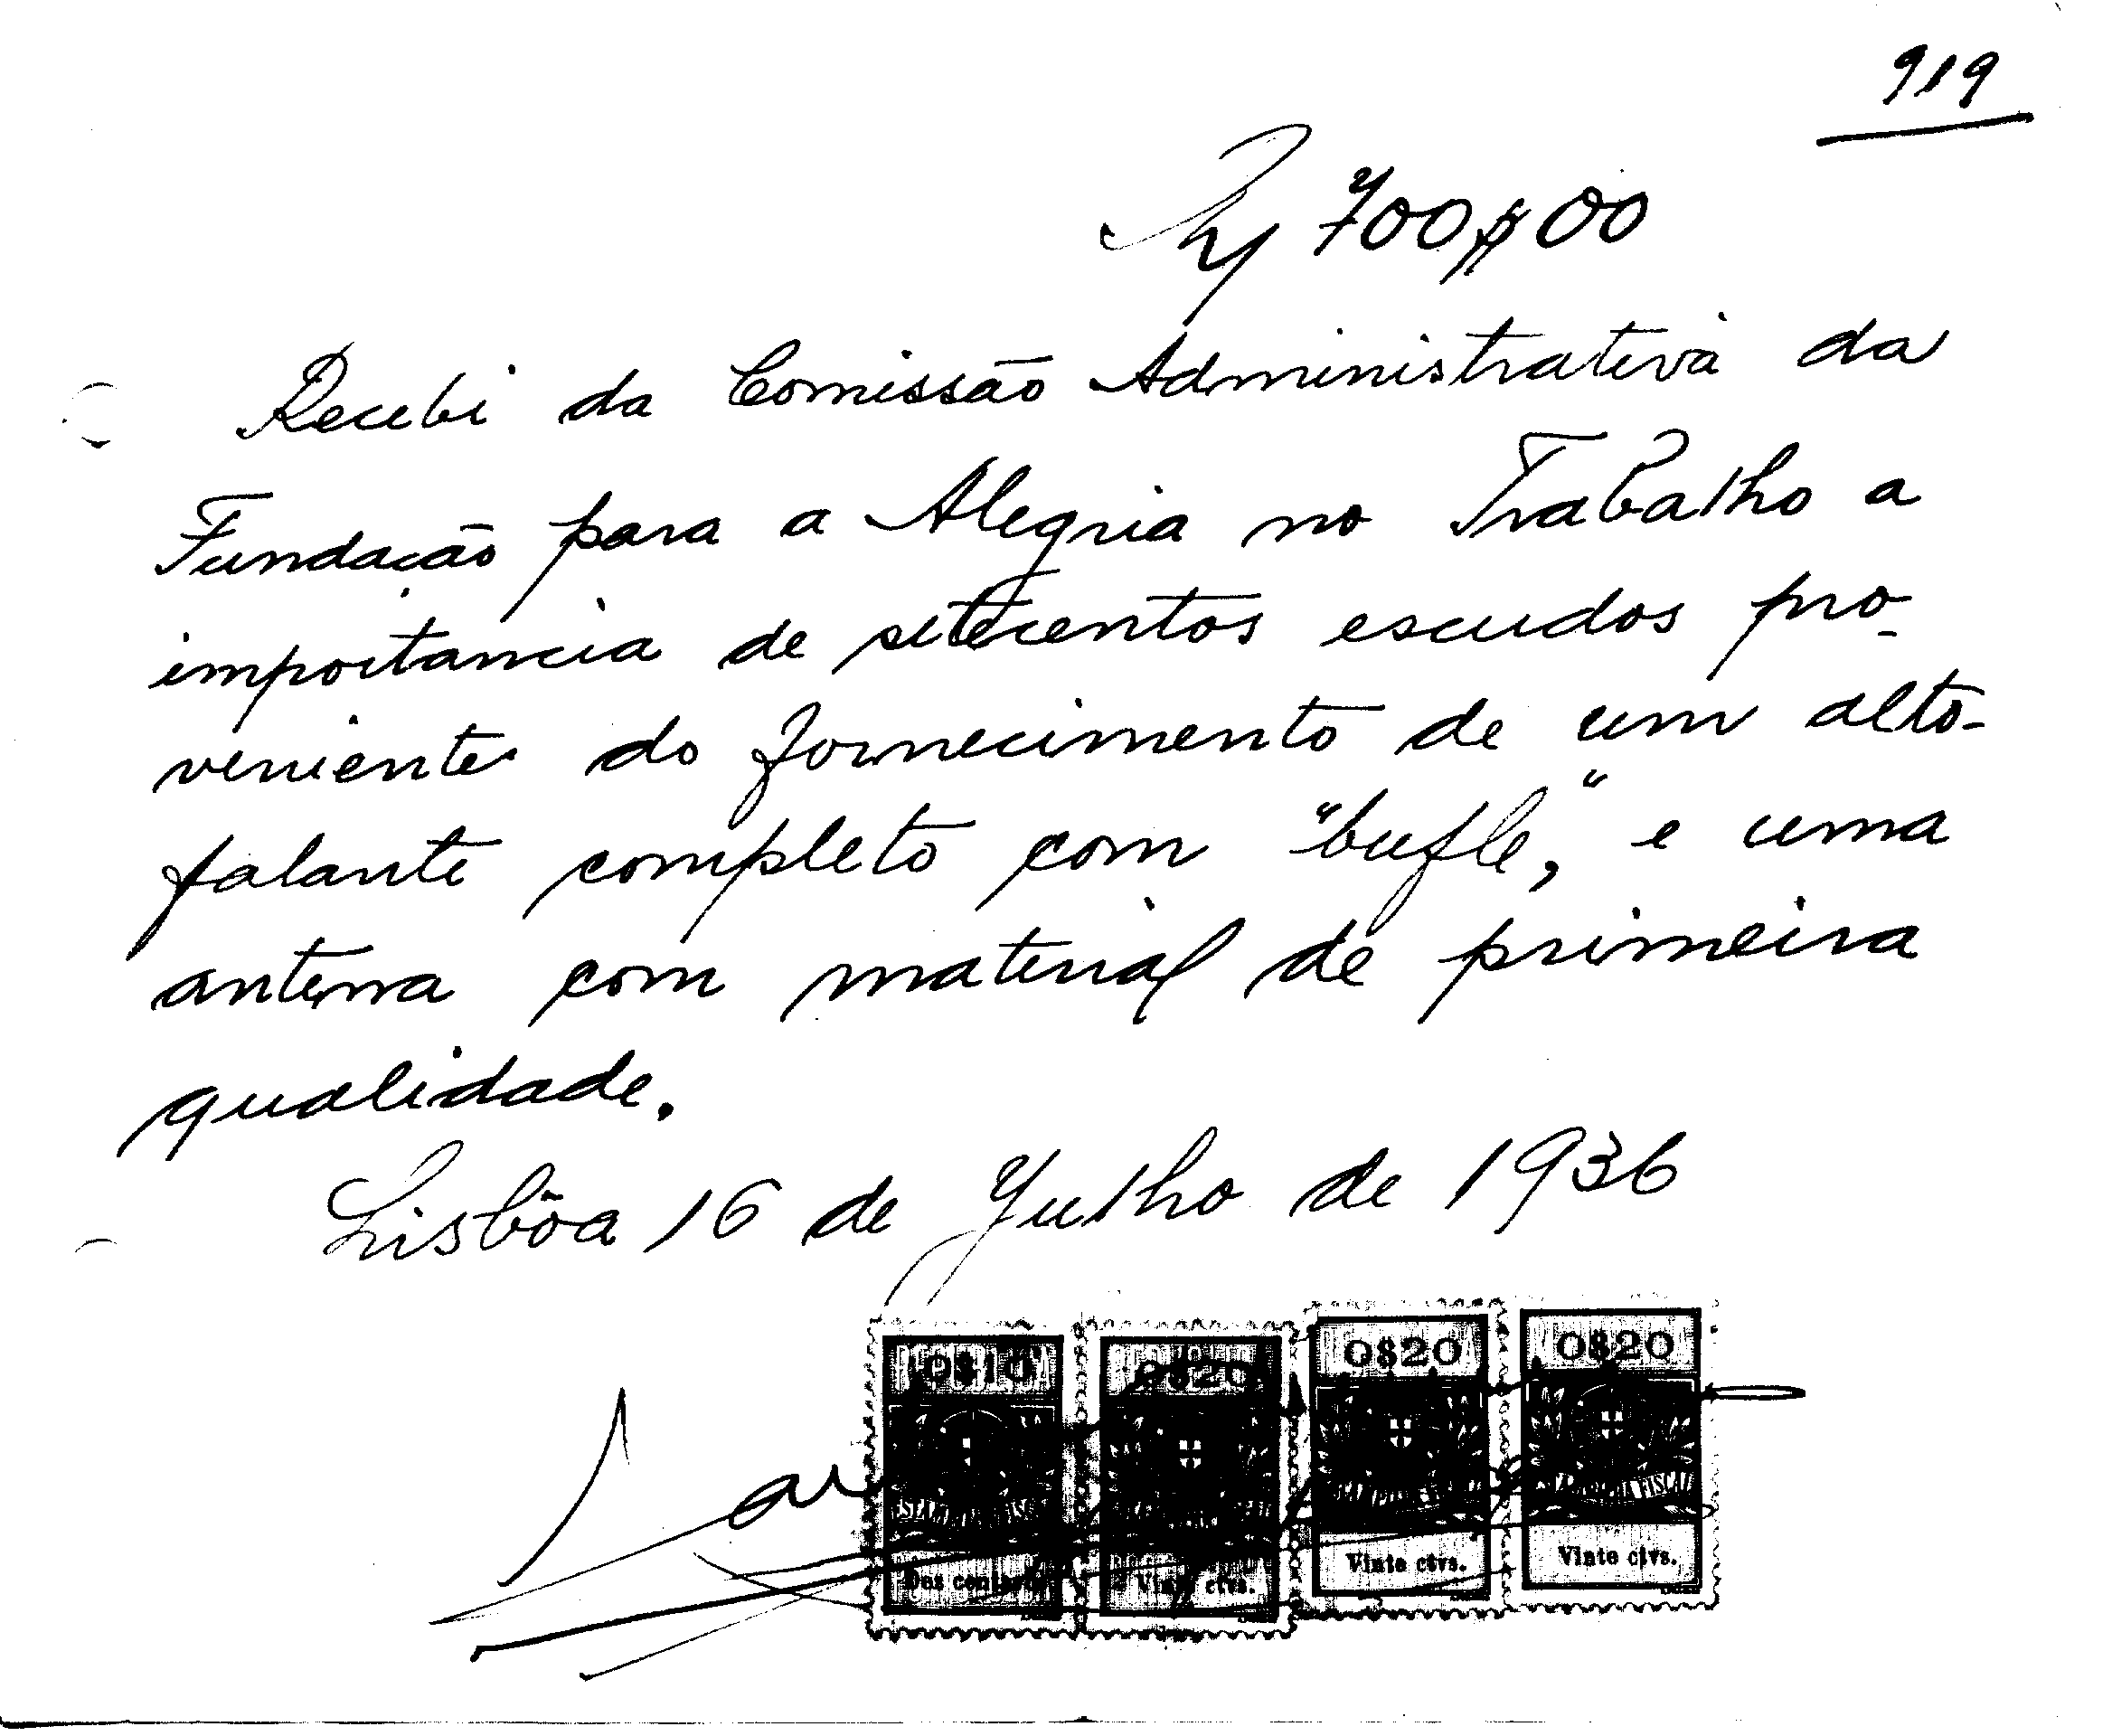 919
700$00
Recebi da Comissão Administrativa da
Fundação para a Alegria no Trabalho a
importancia de setecentos escudos pro-
veniente do fornecimento de um alto-
falante completo com "bufle," e uma
antena com material de primeira
qualidade.
Lisbôa 16 de Julho de 1936
0$10 0$20 0$20 0$20
ESTAMPILHA FISCAL
Dez centavos Vinte ctvs. Vinte ctvs. Vinte ctvs.